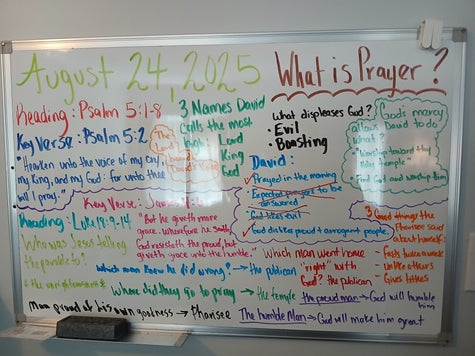 August 24, 2025
What is Prayer?
Reading: Psalm 5:1-8
Key Verse: Psalm 5:2
"Hearken unto the voice of my cry,
my King, and my God: for unto thee
will I pray."
The
Lord
heard
David's
3 Names David
calls the most
high:
Lord
King
God
What displeases God?
• Evil
• Boasting
God's mercy
allows David to do
what?
Worship toward thy
Holy temple"
David:
✓ Prayed in the morning
Expected prayers to be
answered
God likes evil
✓ God dislikes proud + arrogant people.
Key Verse: James 4:6
"But he giveth more
grace. wherefore he saith,
God resisteth the proud, but
giveth grace unto the humble."
Reading: Luke 18:9-14
Who was Jesus telling
the parable to?
* the unrighteousness*
3 Good things the
Pharisee said
about himself:
- fasts twice a week
- unlike others
- Gives tithes
Which man knew he did wrong? → the publican
Which man went home
"right" with
God? the publican
Where did they go to pray → the temple
the proud man → God will humble
him
Man proud of his own goodness → Pharisee
The humble Man → God will make him great